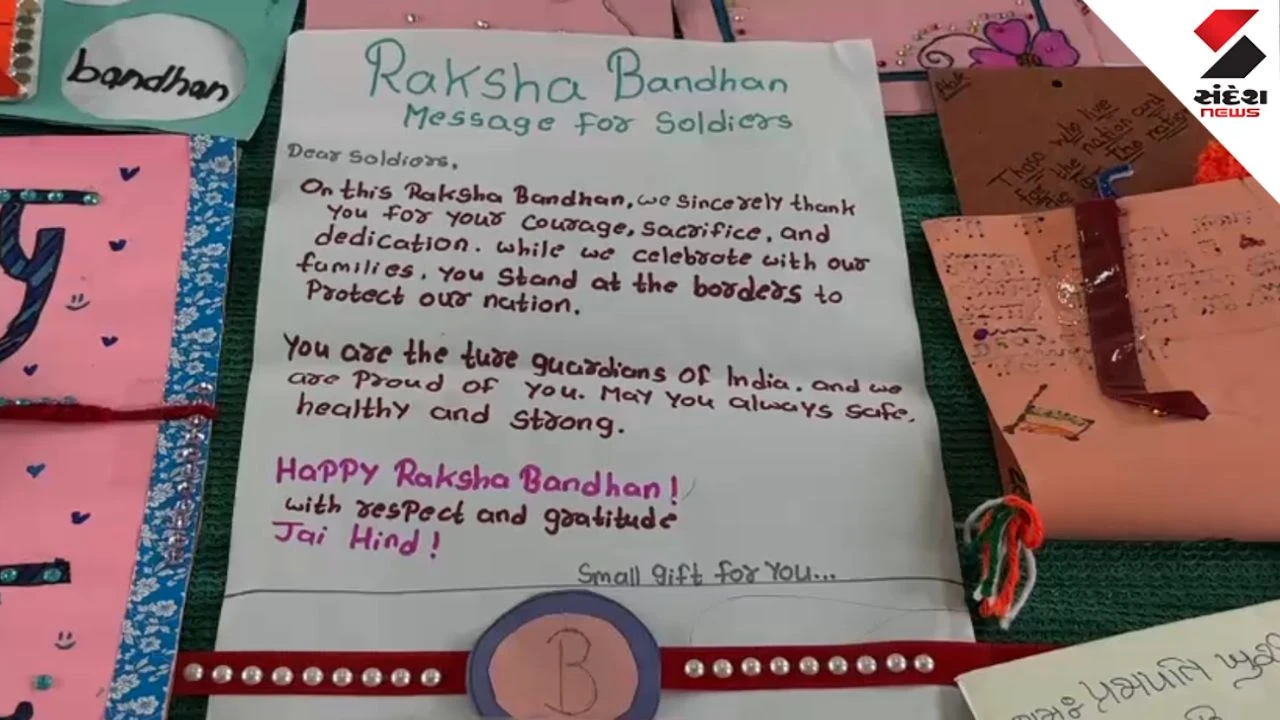 bandhan
Raksha Bandhan
Message for Soldiers
Dear Soldiers,
On this Raksha Bandhan, we sincerely thank
you for your courage, sacrifice, and
dedication. while we celebrate with our
families, you stand at the borders to
Protect our nation.
You are the ture guardians of India. and we
are Proud of you. May you always safe,
healthy and strong.
HaPPY Raksha Bandhan!
with respect and gratitude
Jai Hind!
Small gift for you...
B
Those who live
for the nation and
the nation
સંદેશ
NEWS